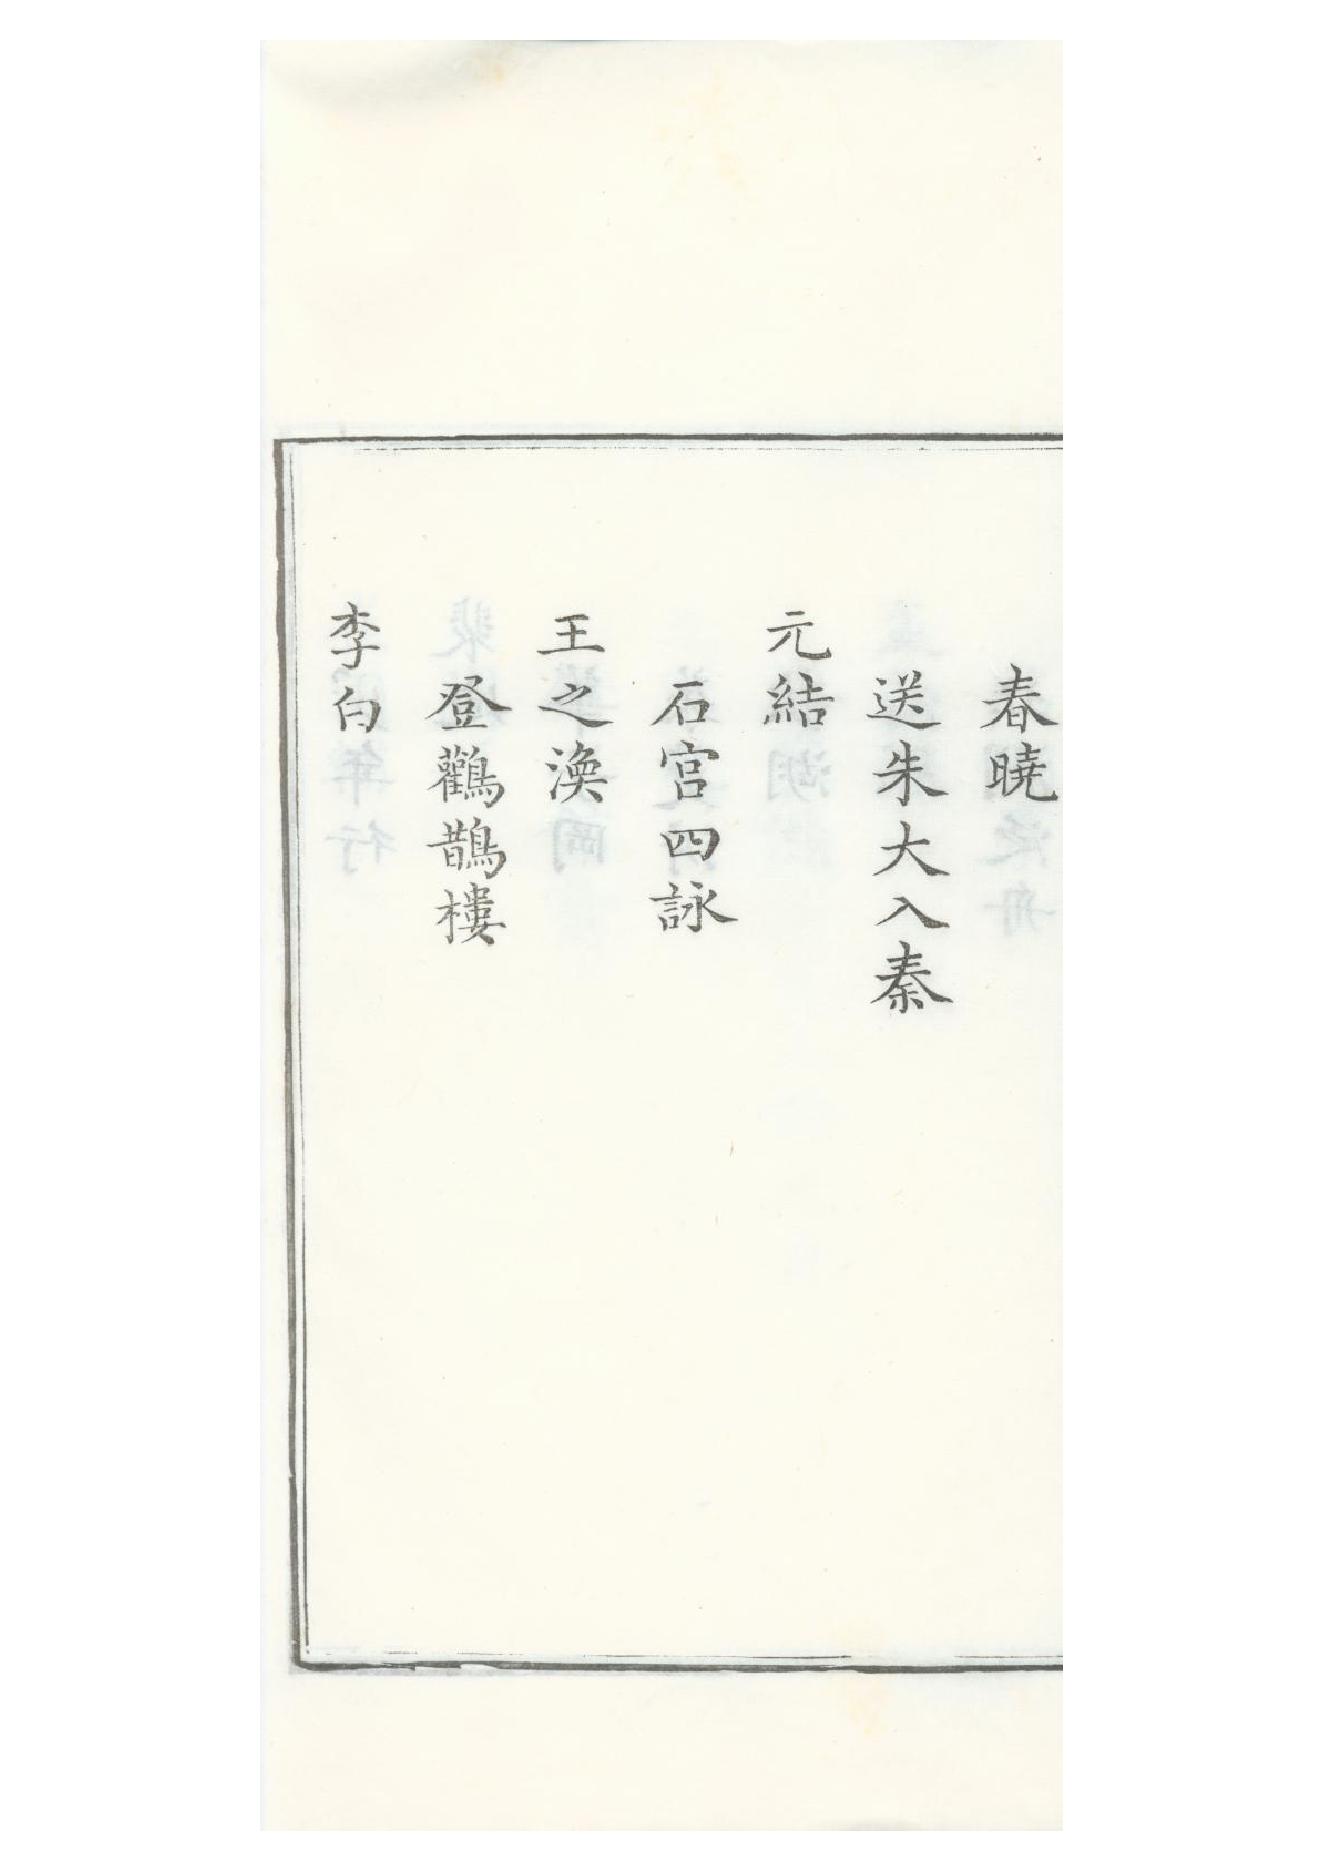 春曉
送朱大入秦
元結
石宮四詠
王之渙
登鸛鵲樓
李白